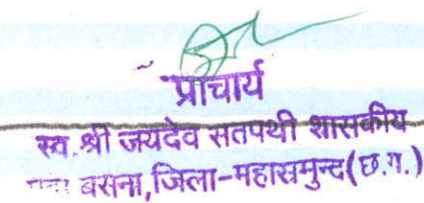 प्राचार्य
स्व. श्री जयदेव सतपथी शासकीय
बसना, जिला-महासमुन्द (छ.ग.)